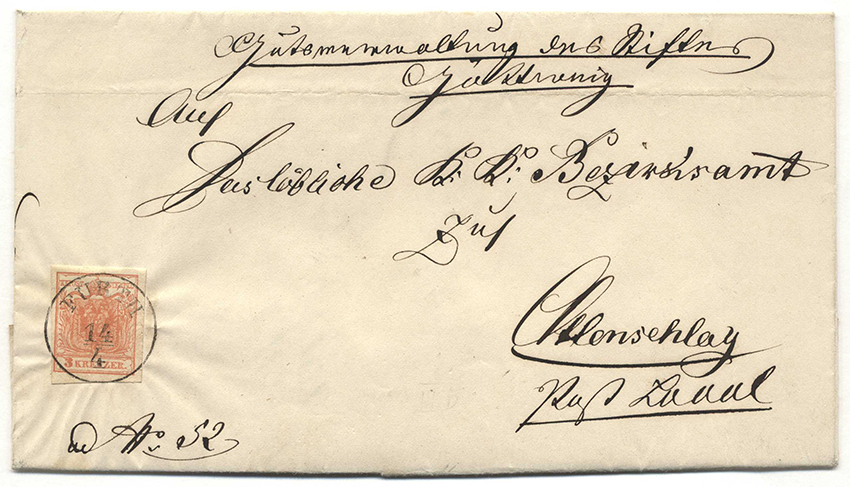 Gutsverwaltung des Stiftes
Göttweig
An
Das löbliche K: K: Bezirksamt
zu
Ottenschlag
Post Zwettl
FURTH
14
4
3 KREUZER.
ad No. 52